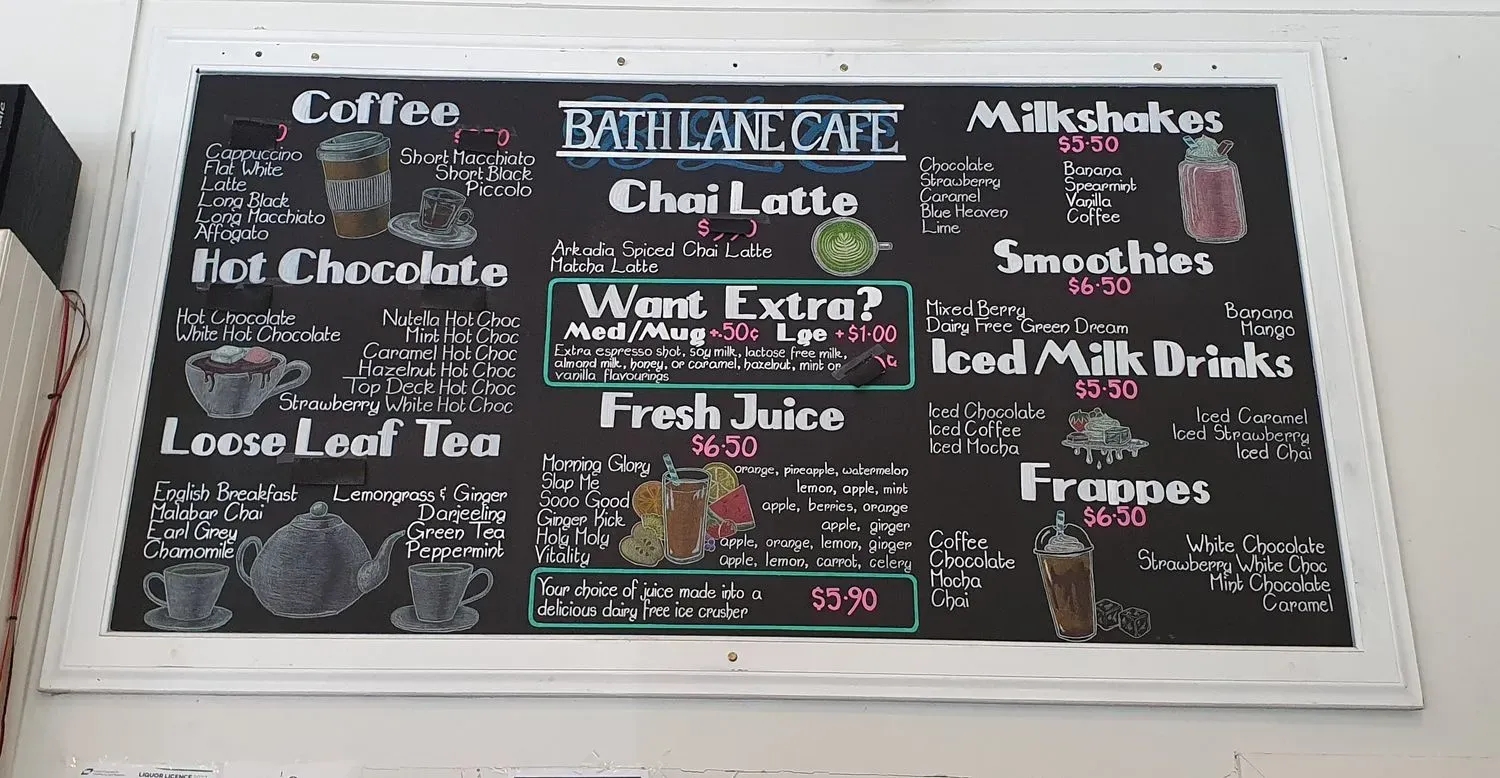 Coffee
Cappuccino
Flat White
Latte
Long Black
Long Macchiato
Affogato
Short Macchiato
Short Black
Piccolo
Hot Chocolate
Hot Chocolate
White Hot Chocolate
Nutella Hot Choc
Mint Hot Choc
Caramel Hot Choc
Hazelnut Hot Choc
Top Deck Hot Choc
Strawberry White Hot Choc
Loose Leaf Tea
English Breakfast
Malabar Chai
Earl Grey
Chamomile
Lemongrass & Ginger
Darjeeling
Green Tea
Peppermint
BATH LANE CAFE
Chai Latte
Arkadia Spiced Chai Latte
Matcha Latte
Want Extra?
Med/Mug +.50¢ Lge +$1.00
Extra espresso shot, soy milk, lactose free milk,
almond milk, honey, or caramel, hazelnut, mint or
vanilla flavourings
Fresh Juice
$6.50
Morning Glory orange, pineapple, watermelon
Slap Me lemon, apple, mint
Sooo Good apple, berries, orange
Ginger Kick apple, ginger
Holy Moly apple, orange, lemon, ginger
Vitality apple, lemon, carrot, celery
Your choice of juice made into a
delicious dairy free ice crusher
$5.90
Milkshakes
$5.50
Chocolate
Strawberry
Caramel
Blue Heaven
Lime
Banana
Spearmint
Vanilla
Coffee
Smoothies
$6.50
Mixed Berry
Dairy Free Green Dream
Banana
Mango
Iced Milk Drinks
$5.50
Iced Chocolate
Iced Coffee
Iced Mocha
Iced Caramel
Iced Strawberry
Iced Chai
Frappes
$6.50
Coffee
Chocolate
Mocha
Chai
White Chocolate
Strawberry White Choc
Mint Chocolate
Caramel
LIQUOR LICENCE